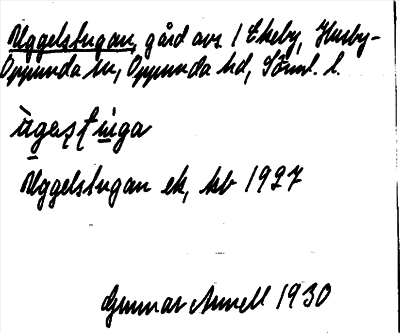 Uggelstugan, gård avs. 1 Ekeby, Husby-
Oppunda sn, Oppunda hd, Söml. l.
Uggelstugan ek, kb 1927
Gunnar Annell 1930